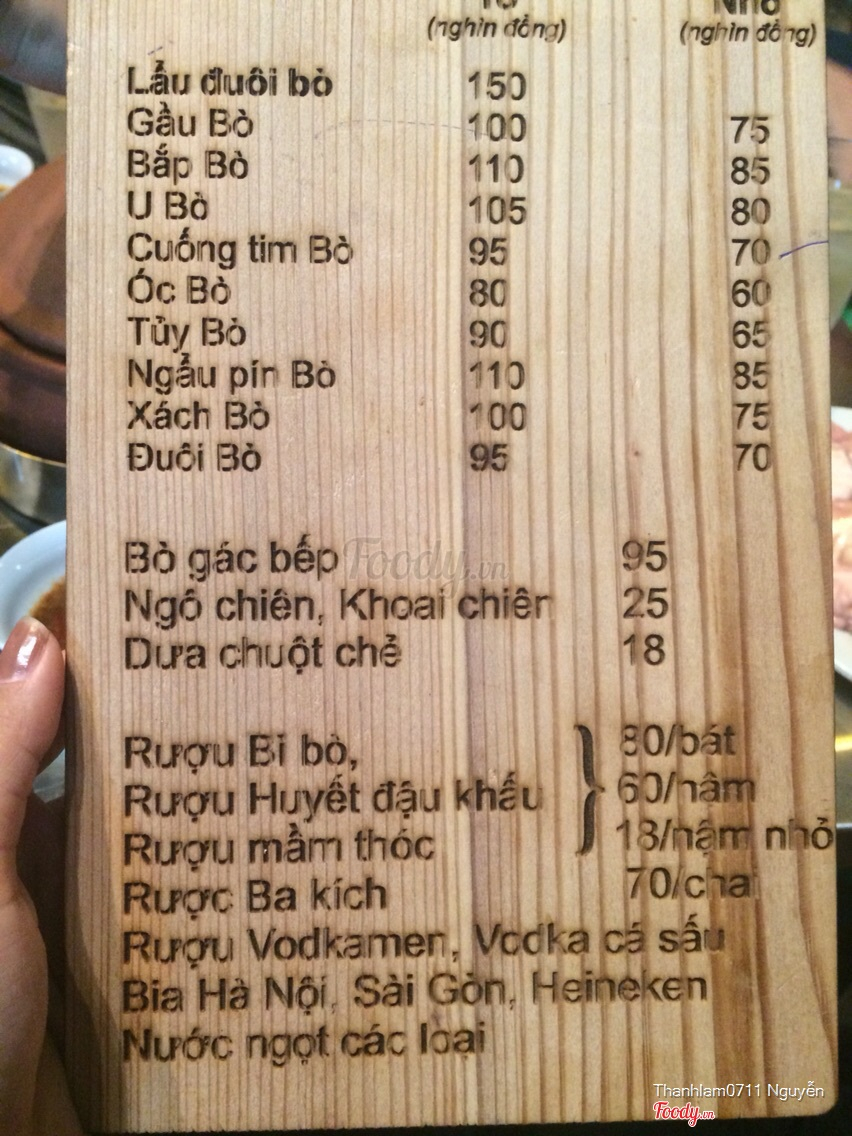 (nghìn đồng) (nghìn đồng)
Lẩu đuôi bò 150
Gầu Bò 100 75
Bắp Bò 110 85
U Bò 105 80
Cuống tim Bò 95 70
Óc Bò 80 60
Tủy Bò 90 65
Ngẩu pín Bò 110 85
Xách Bò 100 75
Đuôi Bò 95 70
Bò gác bếp 95
Ngô chiên, Khoai chiên 25
Dưa chuột chẻ 18
Rượu Bi bò, 80/bát
Rượu Huyết đậu khấu 60/nậm
Rượu mầm thóc 18/nậm nhỏ
Rược Ba kích 70/chai
Rượu Vodkamen, Vodka cá sấu
Bia Hà Nội, Sài Gòn, Heineken
Nước ngọt các loại
Foody.vn
Thanhlam0711 Nguyễn
Foody.vn